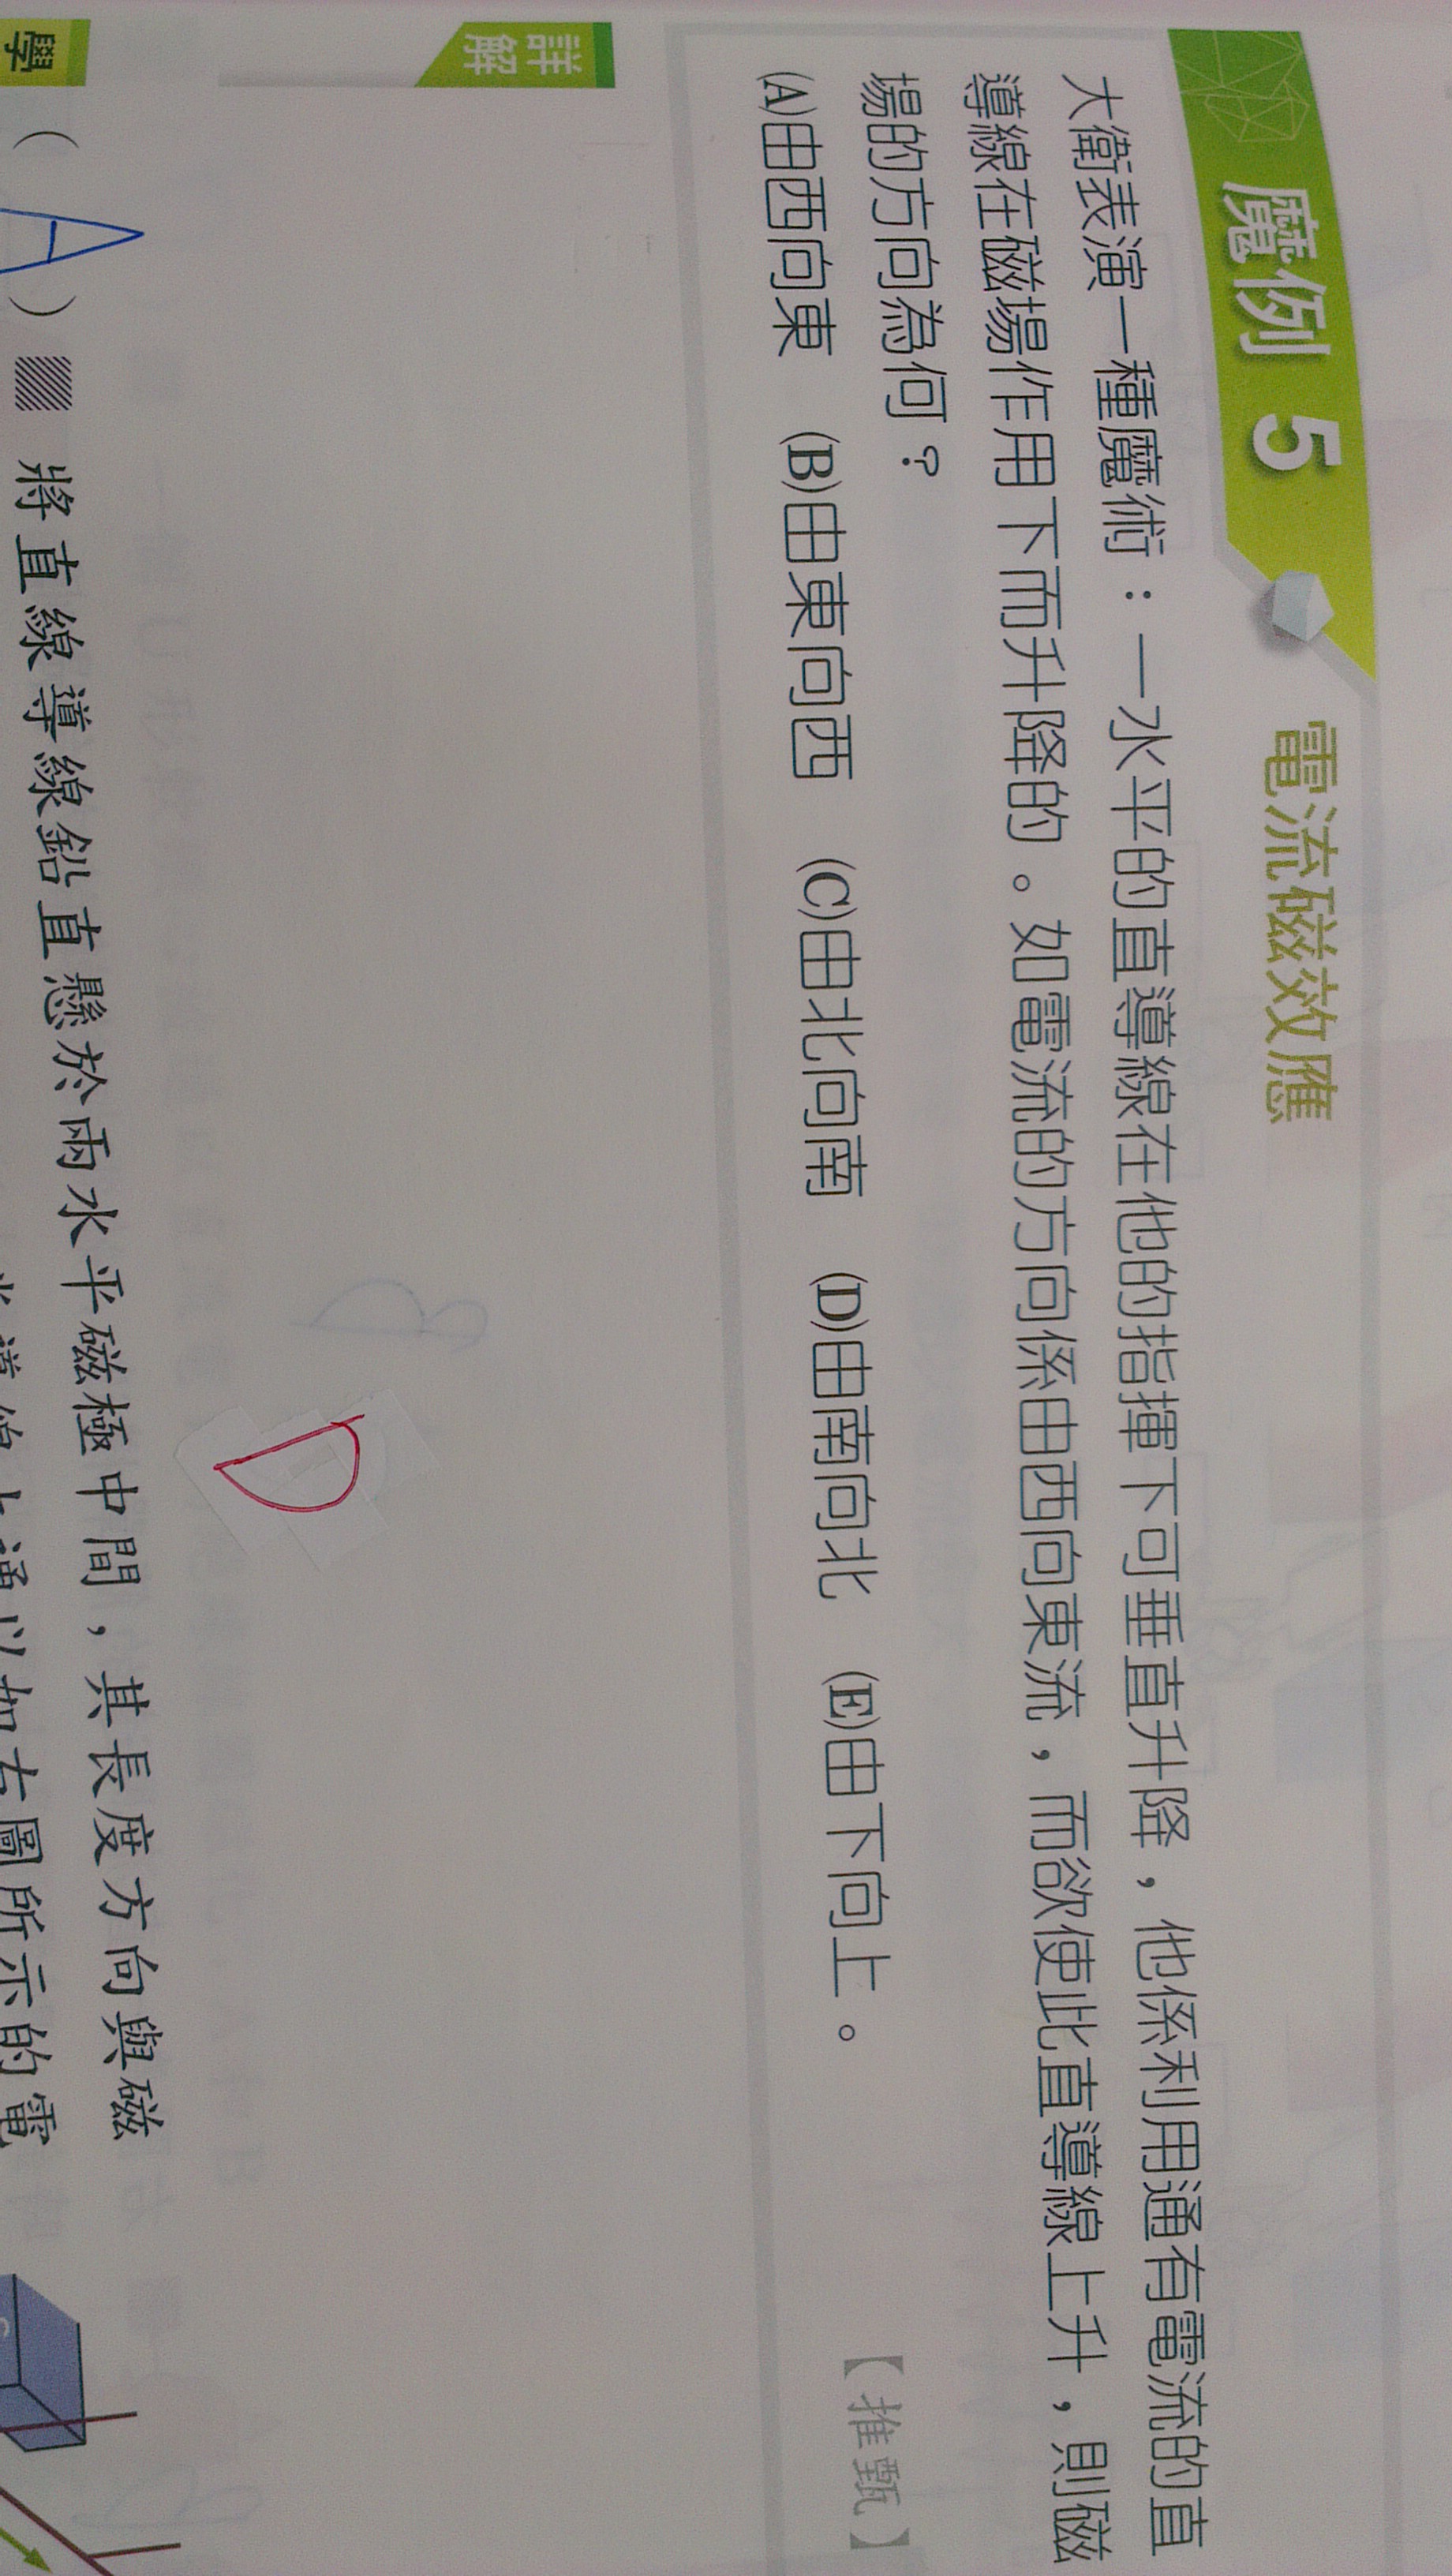 魔例 5 電流磁效應
大衛表演一種魔術：一水平的直導線在他的指揮下可垂直升降，他係利用通有電流的直
導線在磁場作用下而升降的。如電流的方向係由西向東流，而欲使此直導線上升，則磁
場的方向為何？
(A)由西向東 (B)由東向西 (C)由北向南 (D)由南向北 (E)由下向上。
【推甄】
詳解
D
學
( A ) 將直線導線鉛直懸於兩水平磁極中間，其長度方向與磁
導線上通以如右圖所示的電